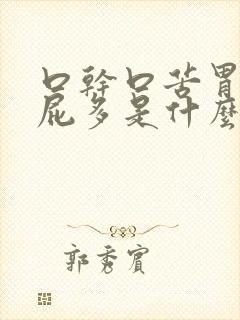 口幹口苦胃
屁多是什麼
郭秀賓